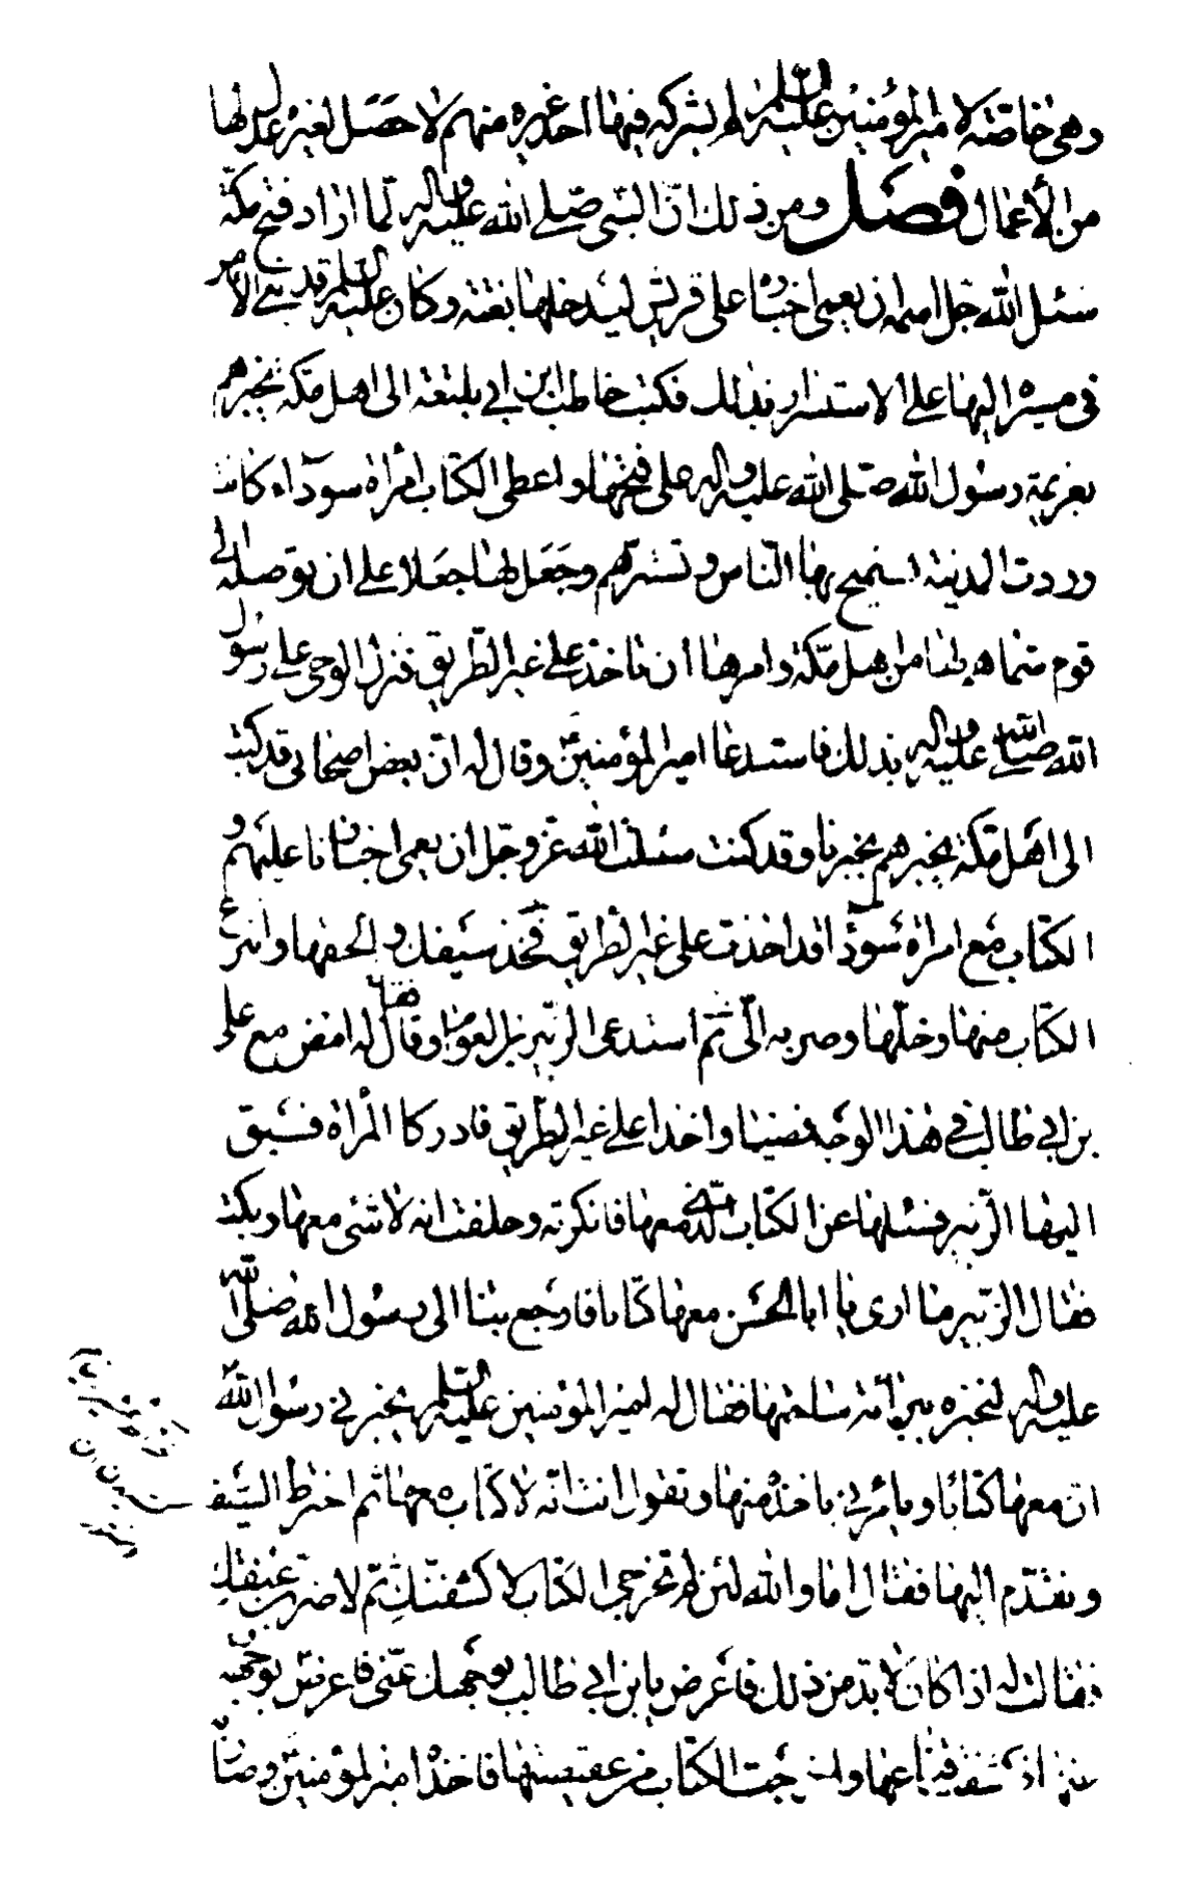 وهی خاصّة لامیر المؤمنین علیه السلم لم یشرکه فیها احد غیره منهم لا حَصَل لغیره عدل لها
من الأعمال فصَل ومن ذلك انّ النبّی صلّی الله علیه واله لمّا اراد فتح مکّة
سئل الله جل اسمه ان یعمی اخباره علی قریش لیدخلها بغتة وکان علیه السلم قد بنی الامر
فی مسیره الیها علی الاستسرار بذلك فکتب حاطب بن ابی بلتعة الی اهل مکّة یخبرهم
بعزیمة رسول الله صلّی الله علیه واله علی فتحها واعطی الکتاب امرأة سودآء کانت
وردت المدینة تستمیح بها النّاس وتستبرّهم وجَعَل لها جعلا علی ان توصله الی
قوم سمّاهم لها من اهل مکّة وامرها ان تاخذ علی غیر الطّریق فنزل الوحی علی رسول
الله صلّی الله علیه واله بذلك فاستدعا امیر المؤمنینؑ وقال له انّ بعض اصحابی قد کتب
الی اهَل مکّة یخبرهم بخبرنا وقد کنت سئلت الله عزّ وجلّ ان یعمی اخبارنا علیهم و
الکتاب مَع امراة سَودآء قد اخذت علی غیر الطریق فخذ سَیفك والحقها وانتزع
الکتاب منها وخلّها وصر به الیّ ثمّ استدعی الزّبیر بن العوام وقال له امض مع علی
بن ابی طالب فی هذا الوجه فمضیا واخذا علی غیر الطّریق فادرکا المراة فسَبق
الیها الزّبیر فسئلها عن الکتاب الذی معها فانکرته وحلفت انه لا شئی معها وبکت
فقال الزّبیر ما اری یا ابا الحَسَن معها کتابا فارجع بنا الی رسول الله صلّی الله
علیه واله لنخبره ببرائة ساحتها فقال له امیر المؤمنین علیه السلم یخبرنی رسول الله
ان معها کتابًا ویامرنی باخذه منها وتقول انت انّه لا کتاب معها ثم اخترط السّیف
وتقدّم الیها فقال اما والله لئن لم تخرجی الکتاب لاکشفنّكِ ثمّ لاضربنّ عنقكِ
فقالت له اذا کان لا بدّ من ذلك فاَعرض یا بن ابی طالب بوجهك عنّی فاعرض بوجهه
عنها فکشفت قناعها واخرجت الکتاب من عقیصتها فاخذه امیر المؤمنینؑ وصار